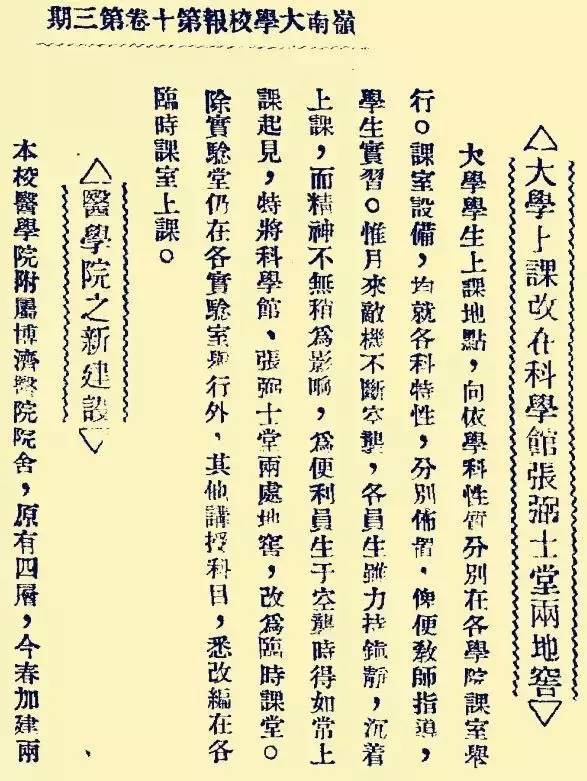 嶺南大學校報第十卷第三期
△大學上課改在科學館張弼士堂兩地窖▽
大學學生上課地點,向依學科性質分別在各學院課室舉
行。課室設備,均就各科特性,分別佈置,俾便教師指導,
學生實習。惟月來敵機不斷空襲,各員生雖力持鎮靜,沉着
上課,而精神不無稍爲影响,爲便利員生于空襲時得如常上
課起見,特將科學館、張弼士堂兩處地窖,改爲臨時課堂。
除實驗堂仍在各實驗室舉行外,其他講授科目,悉改編在各
臨時課室上課。
△醫學院之新建設▽
本校醫學院附屬博濟醫院院舍,原有四層,今春加建兩